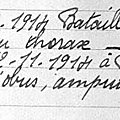 . 1914 Bataill
u thorax —
2-11.1914 à
obus, ampu